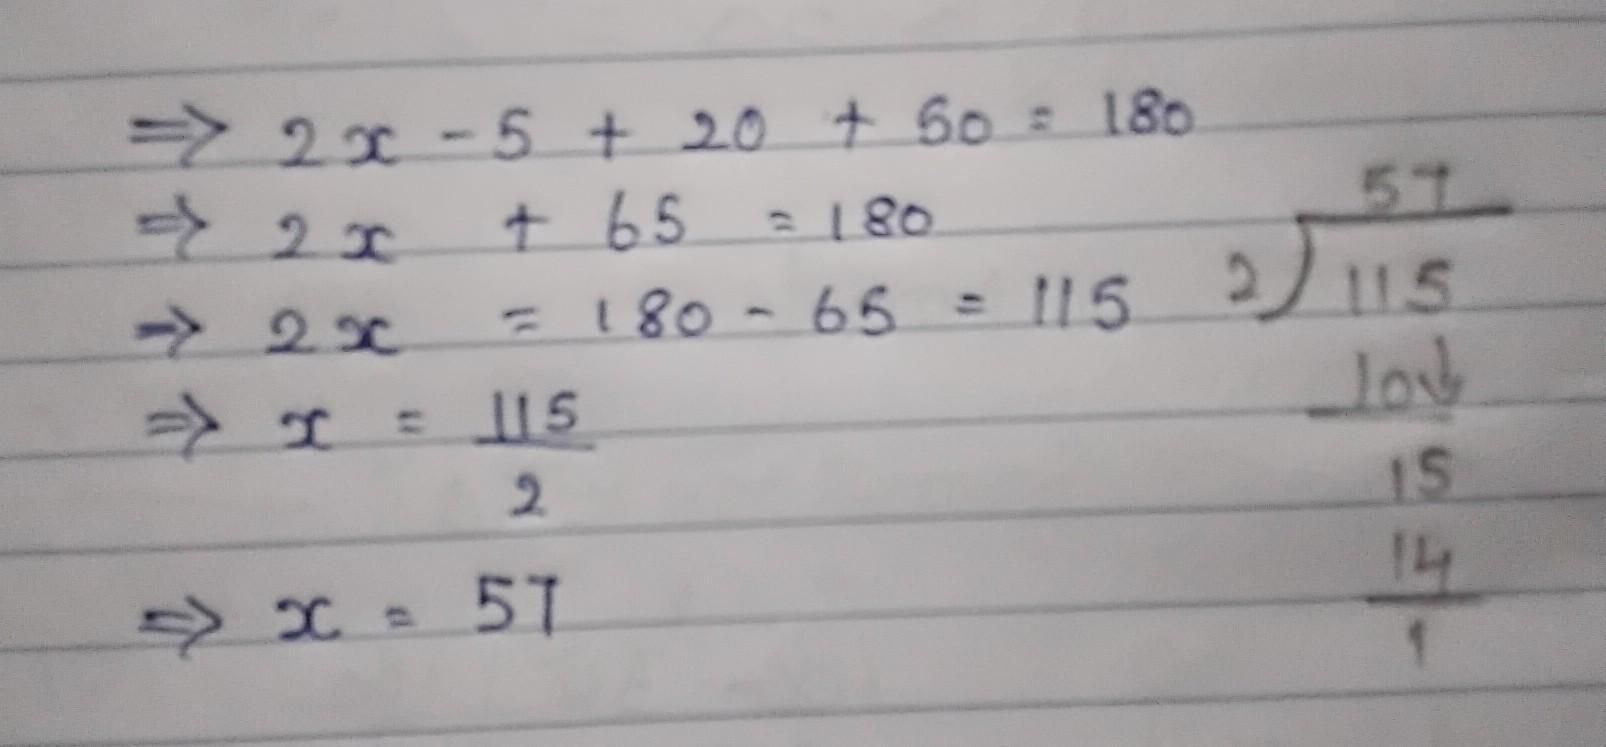 ⇒ 2x - 5 + 20 + 50 = 180
⇒ 2x + 65 = 180
⇒ 2x = 180 - 65 = 115
⇒ x = 115
2
⇒ x = 57
57
2) 115
10↓
15
14
1